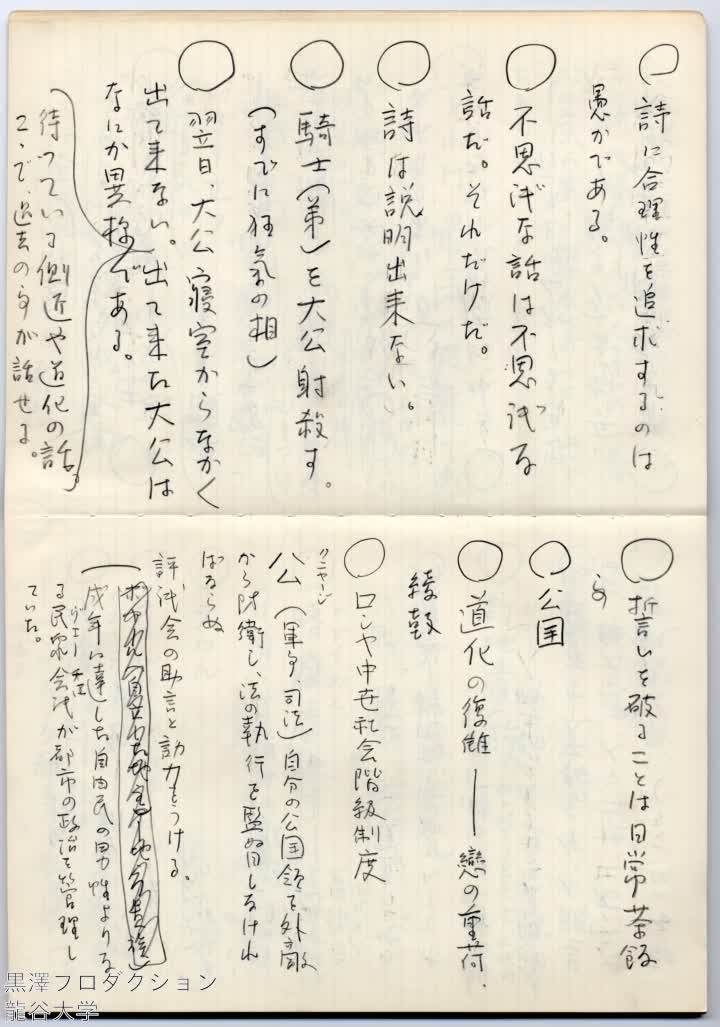 ○ 詩に合理性を追求するのは
愚かである。
○ 不思議な話は不思議な
話だ。それだけだ。
○ 詩は説明出来ない。
○ 騎士(弟)を大公射殺す。
(すでに狂気の相)
○ 翌日、大公寝室からなかく
出て来ない。出て来た大公は
なにか異様である。
待っている側近や道化の話
こゝで、過去の事が話せる。
○ 誓いを破ることは日常茶飯
事
○ 公国
○ 道化の復讐――戀の重荷、
綾鼓
○ ロシヤ中世社会階級制度
公(軍事、司法)自分の公国領を外敵
クニャージ
から防衛し、法の執行を監督しなけれ
ばならぬ
評議会の助言と助力をうける。
成年に達した自由民の男性よりな
る民衆会議が都市の政治を管理し
ヴェーチェ
ていた。
黒澤プロダクション
龍谷大学